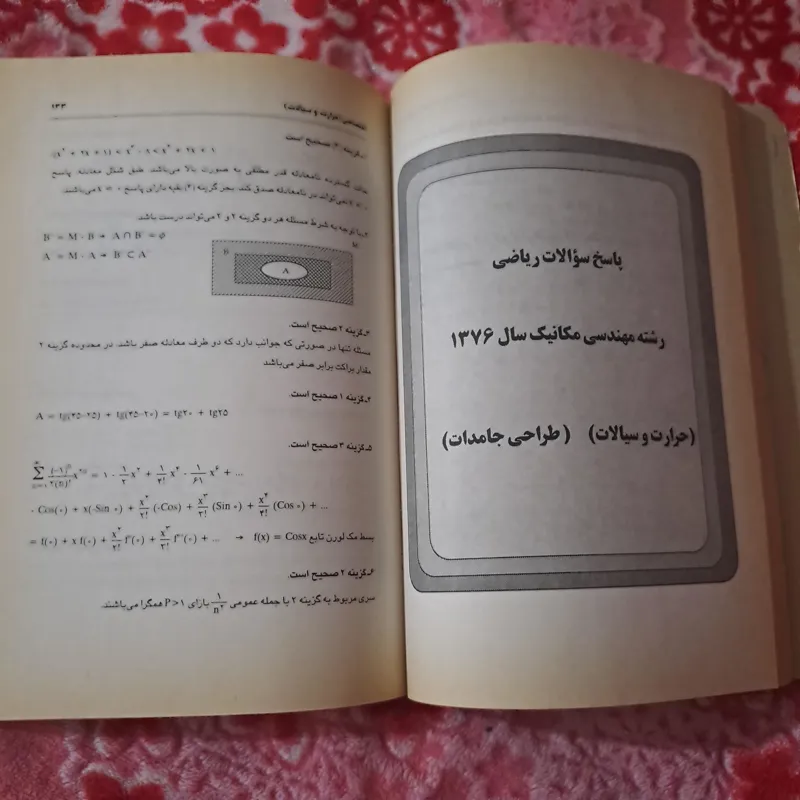 ۱۳۳
اختصاصی (حرارت و سیالات)
۱ـ گزینه ۳ صحیح است
حالت گسترده نامعادله قدر مطلقی به صورت بالا می‌باشد. طبق شکل معادله، پاسخ
نمی‌تواند در نامعادله صدق کند. بجز گزینه (۴) بقیه دارای پاسخ x = ۰ می‌باشند.
۲ـ با توجه به شرط مسئله هر دو گزینه ۲ و ۴ می‌تواند درست باشد.
B' = M - B → A ∩ B' = φ
A' = M - A → B' ⊂ A'
M
B
A
۳ـ گزینه ۲ صحیح است.
مسئله تنها در صورتی که جوانب دارد که دو طرف معادله صفر باشد. در محدوده گزینه ۲
مقدار براکت برابر صفر می‌باشد
۴ـ گزینه ۱ صحیح است.
A = tg(۴۵-۲۵) + tg(۴۵-۲۰) = tg۲۰ + tg۲۵
۵ـ گزینه ۳ صحیح است.
= ۱ - ۱/۲ x² + ۱/۴! x⁴ - ۱/۶! x⁶ + ...
Cos(۰) + x(-Sin ۰) + x²/۲! (-Cos) + x³/۳! (Sin ۰) + x⁴/۴! (Cos ۰) + ...
= f(۰) + x f(۰) + x²/۲! f''(۰) + x³/۳! f'''(۰) + ... → f(x) = Cosx بسط مک لورن تابع
۶ـ گزینه ۲ صحیح است.
سری مربوط به گزینه ۲ با جمله عمومی ۱/n² بازای P>۱ همگرا می‌باشند.
پاسخ سؤالات ریاضی
رشته مهندسی مکانیک سال ۱۳۷۶
(حرارت و سیالات) (طراحی جامدات)